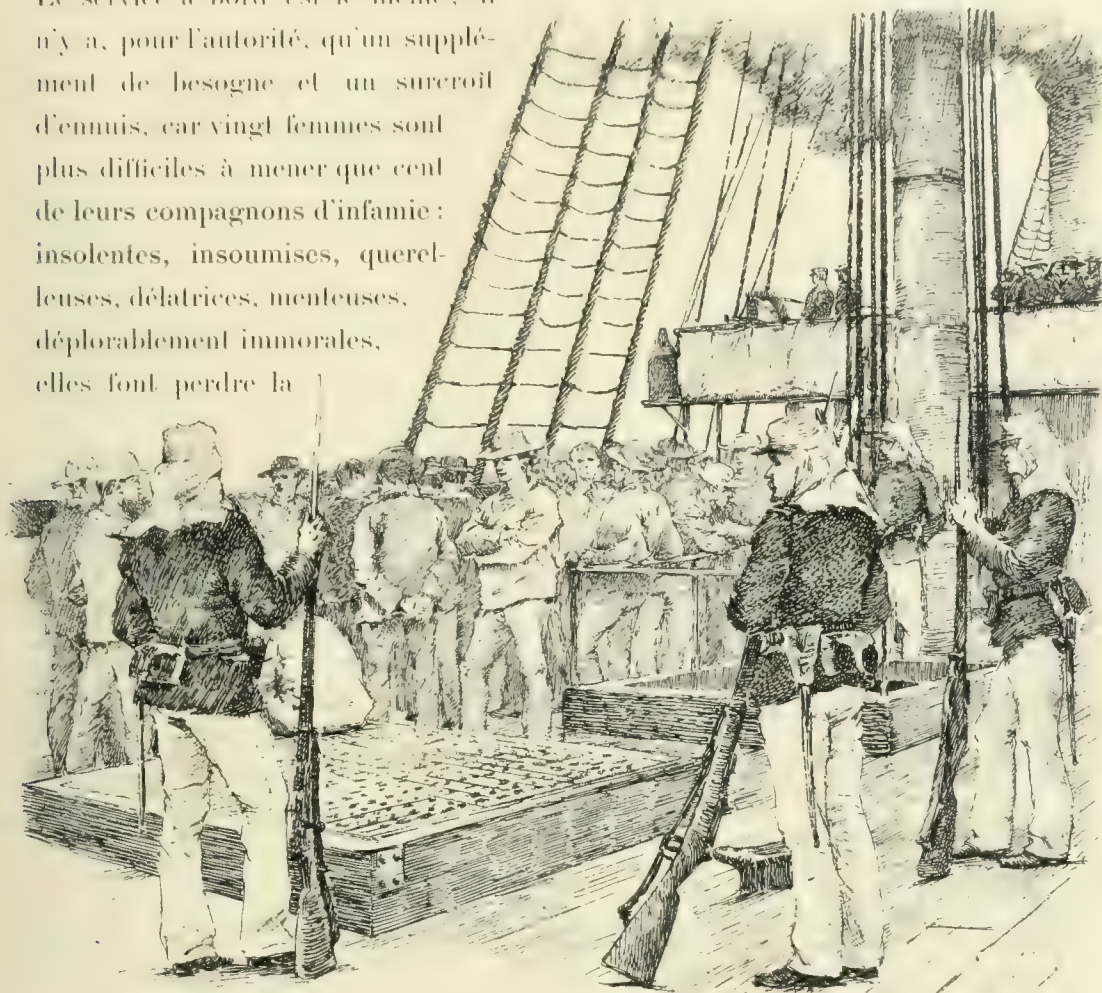 Le service à bord est le même ; il
n'y a, pour l'autorité, qu'un supplé-
ment de besogne et un surcroît
d'ennuis, car vingt femmes sont
plus difficiles à mener que cent
de leurs compagnons d'infamie :
insolentes, insoumises, querel-
leuses, délatrices, menteuses,
déplorablement immorales,
elles font perdre la